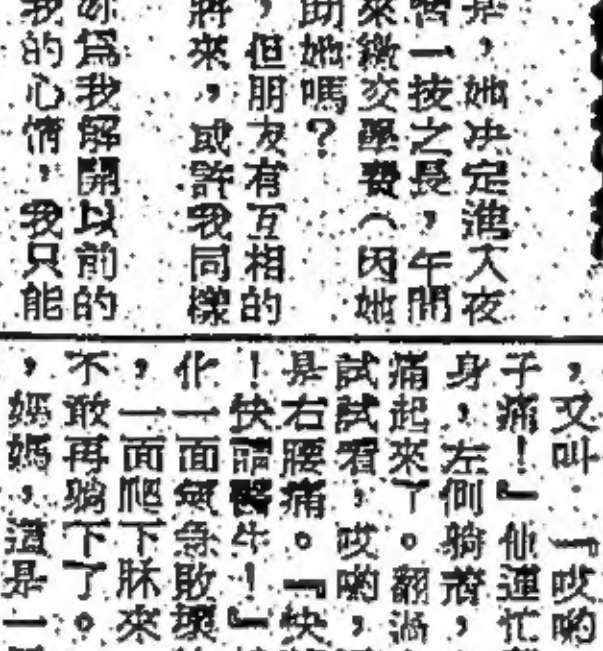 是，她决定進入夜
一技之長，午間
來繳交學費（因她
助她嗎？
，但朋友有互相的
將來，或許我同樣
你爲我解開以前的
我的心情，我只能
，又叫：『哎喲
子痛！』他連忙
身，左側躺着，
痛起來了。翻過
試試看，哎喲，
是右腰痛。『快
！快請醫生！』
化一面氣急敗壞
，一面爬下牀來
不敢再躺下了。
，媽媽，這是一